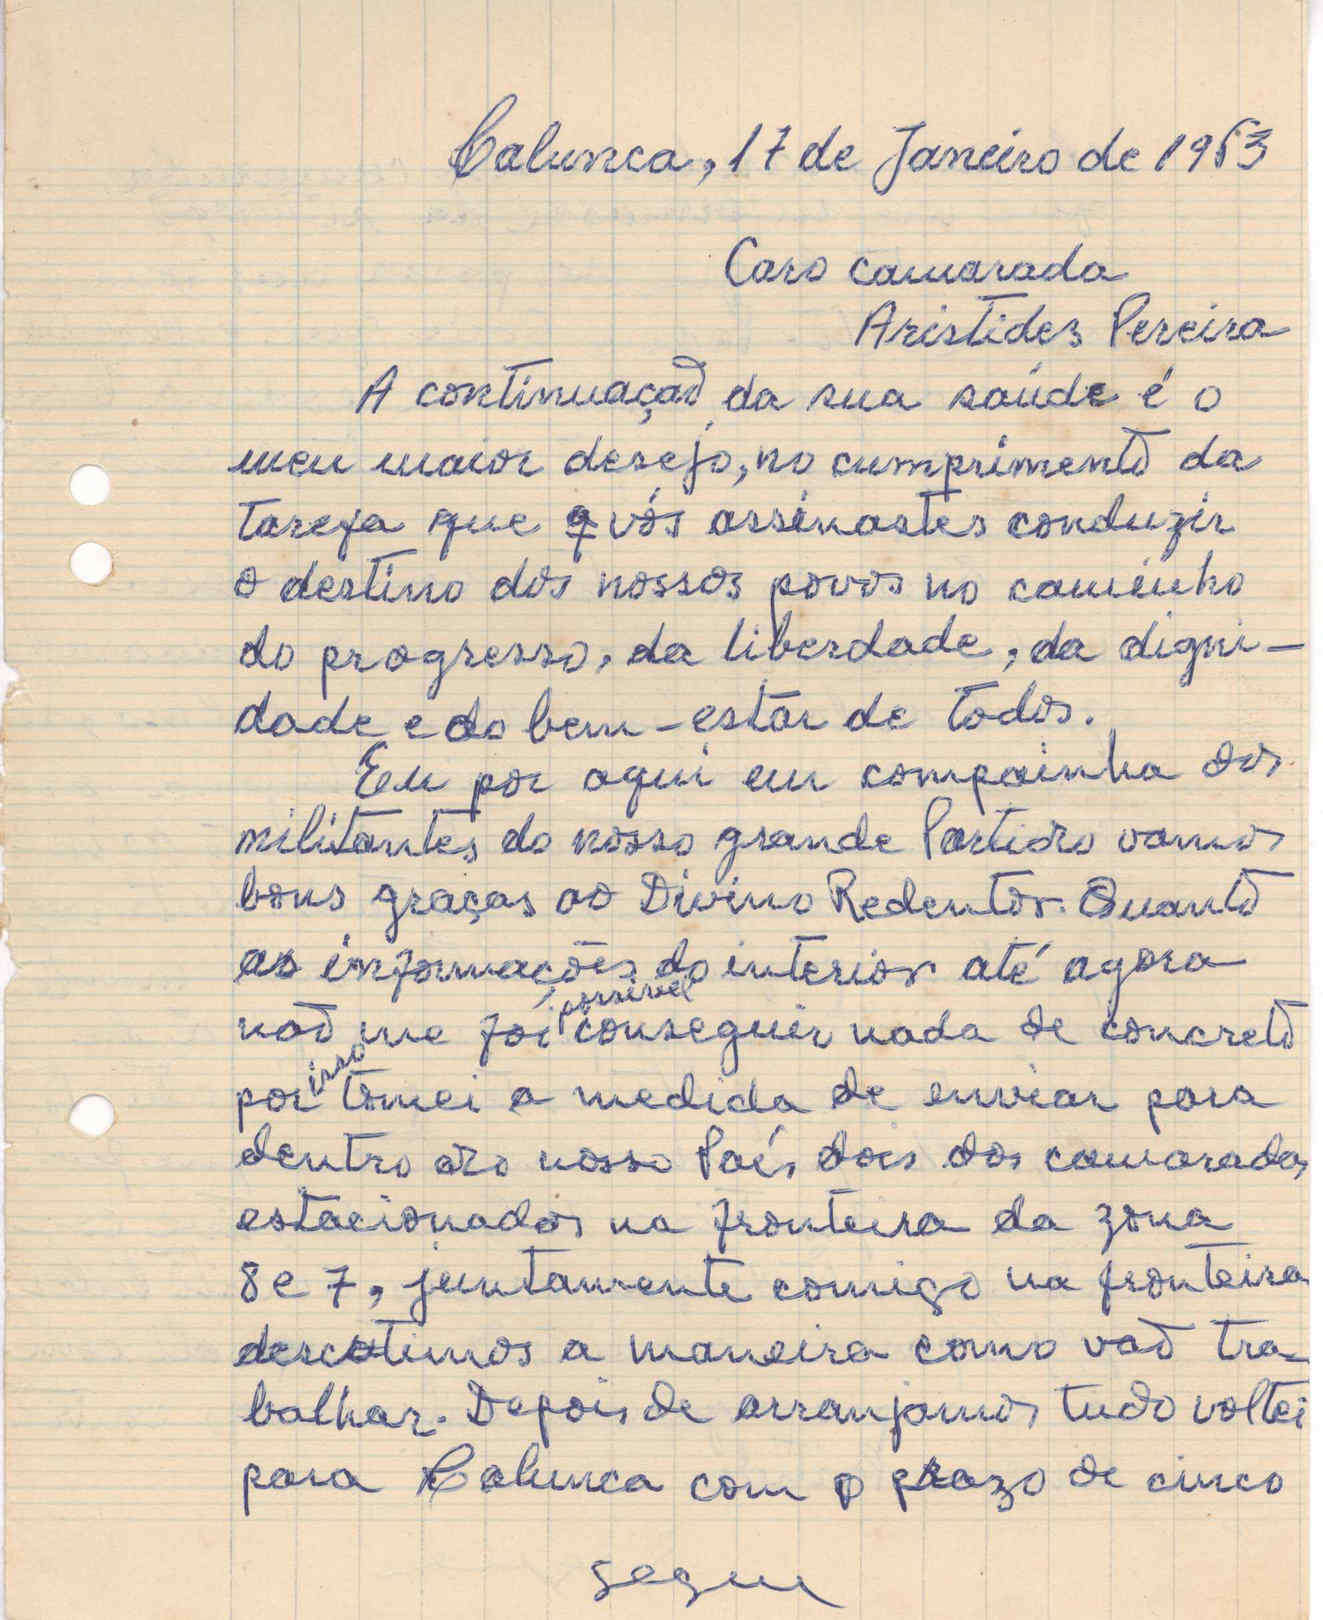 Calunca, 17 de Janeiro de 1963
Caro camarada
Aristides Pereira
A continuaçaõ da sua saúde é o
meu maior desejo, no cumprimento da
tarefa que vós assinastes conduzir
o destino dos nossos povos no caminho
do progresso, da liberdade, da digni-
dade e do bem-estar de todos.
Eu por aqui em compainha dos
militantes do nosso grande Partido vamos
bons graças ao Divino Redentor. Quanto
as informações do interior até agora
possivel
naõ me foi conseguir nada de concreto
isso
por tomei a medida de enviar para
dentro do nosso País dois dos camaradas
estacionados na fronteira da zona
8 e 7, juntamente comigo na fronteira
descutimos a maneira como vaõ tra-
balhar. Depois de arranjamos tudo voltei
para Calunca com o prazo de cinco
segue